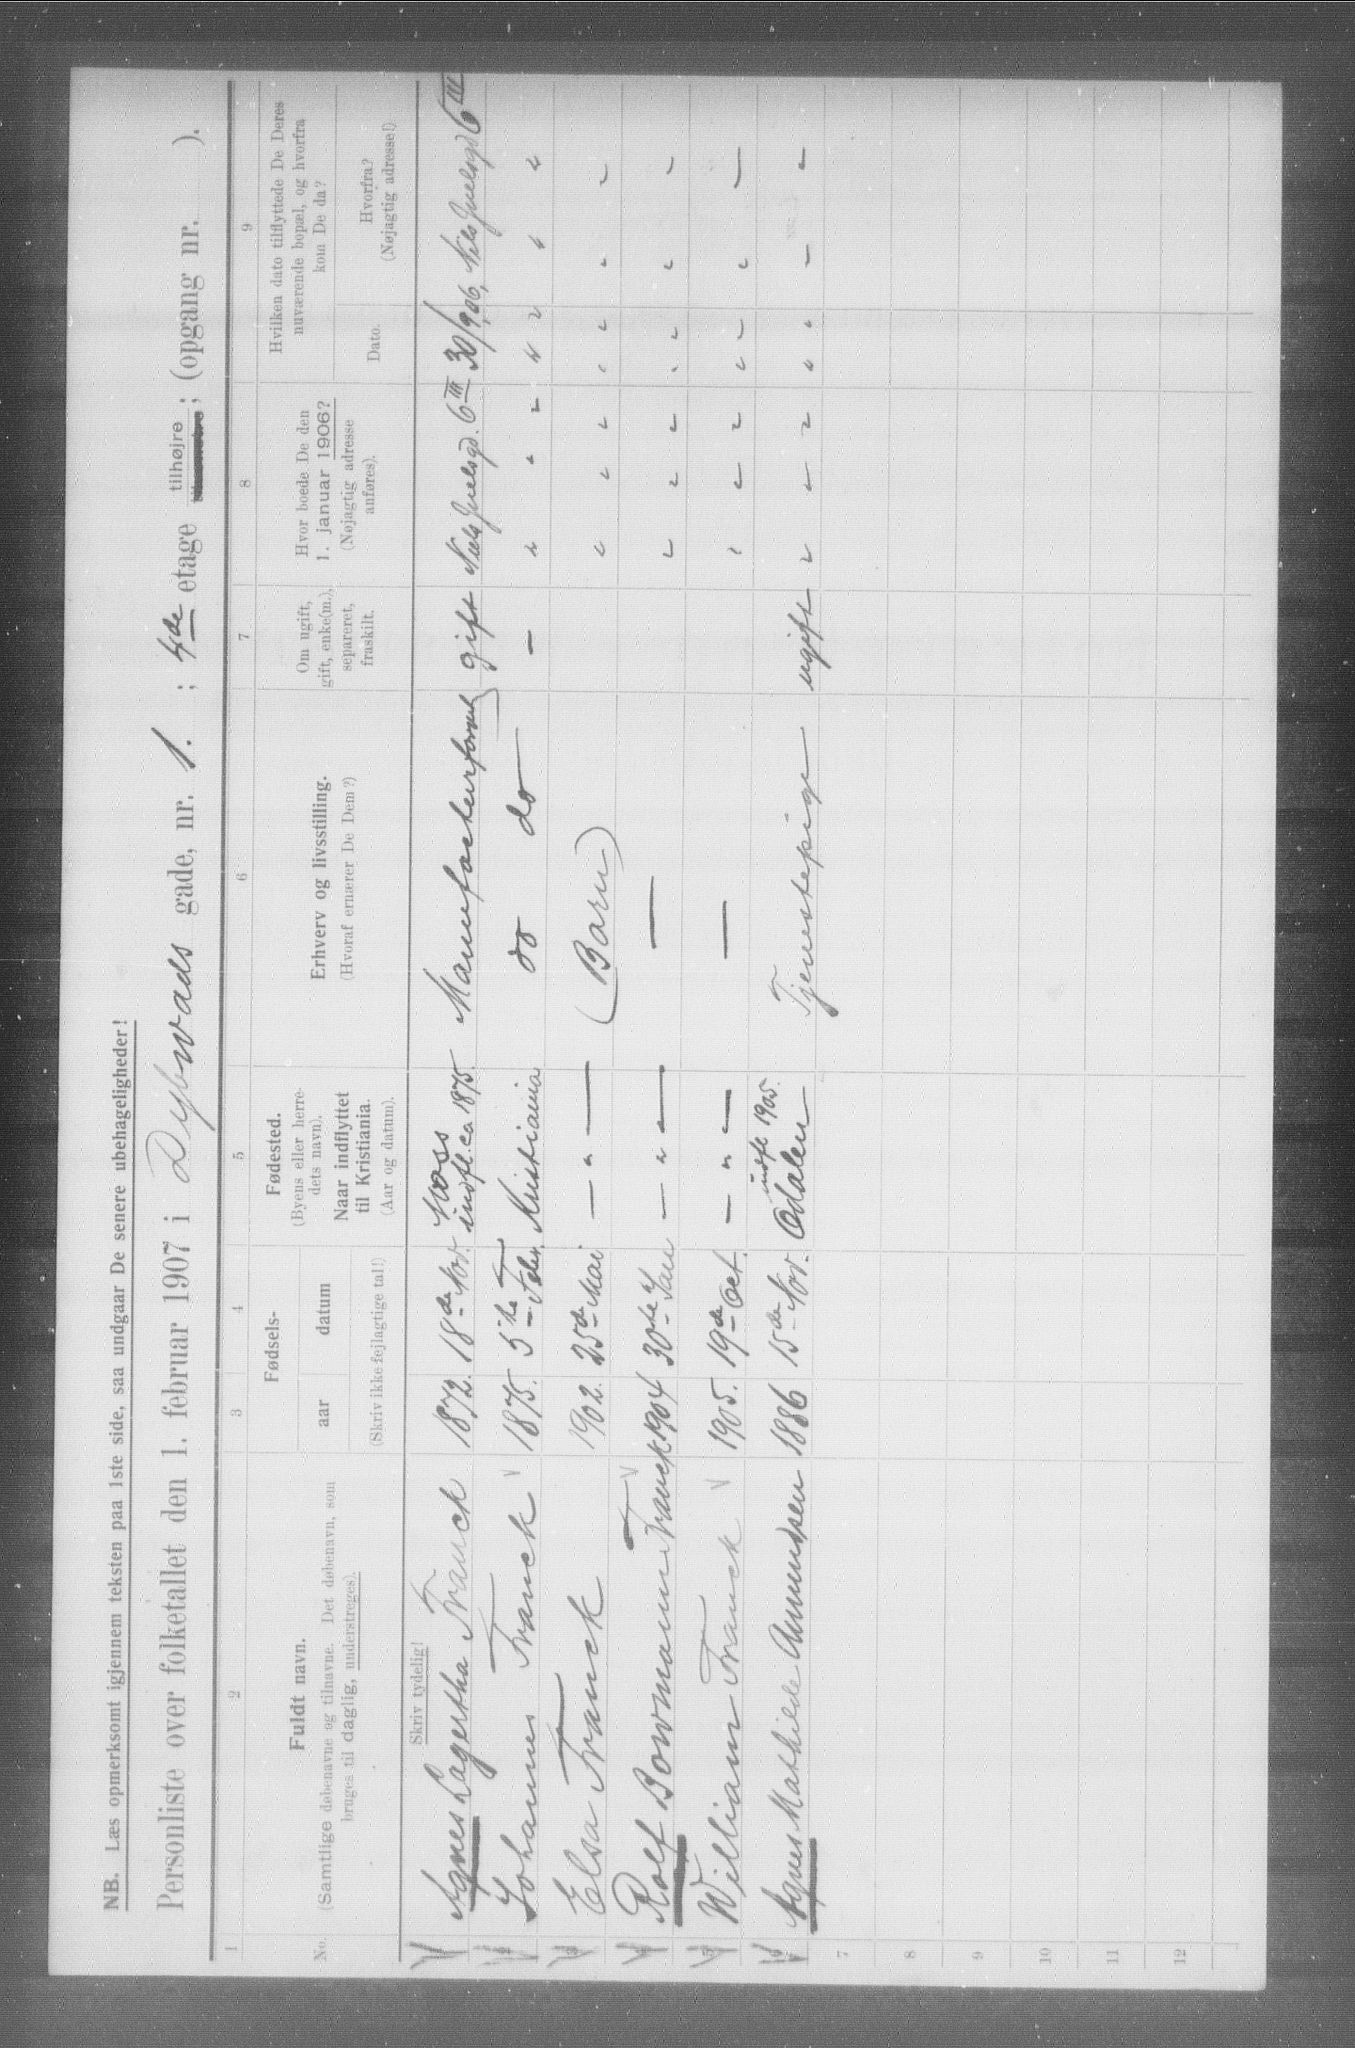 NB. Læs opmerksomt igjennem teksten paa 1ste side, saa undgaar De senere ubehageligheder!
Personliste over folketallet den 1. februar 1907 i Dybwads gade, nr. 1. ; 4de etage tilhøjre ; (opgang nr. ).
1 2 3 4 5 6 7 8 9
No. Fuldt navn. (Samtlige døbenavne og tilnavne. Det døbenavn, som bruges til daglig, understreges).
Fødsels- aar datum (Skriv ikke fejlagtige tal!)
Fødested. (Byens eller herredets navn). Naar indflyttet til Kristiania. (Aar og datum).
Erhverv og livsstilling. (Hvoraf ernærer De Dem?)
Om ugift, gift, enke(m.), separeret, fraskilt.
Hvor boede De den 1. januar 1906? (Nøjagtig adresse anføres).
Hvilken dato tilflyttede De Deres nuværende bopæl, og hvorfra kom De da?
Dato. Hvorfra? (Nøjagtig adresse!)
Skriv tydelig!
Agnes Lagertha Franck 1872. 18de Nov. Voss indfl. ca. 1875. Manufacturforret gift Niels Juelsgd. 6 III 30/9 06, Nils Juelsgd 6 III
2 Johannes Franck 1875. 5te Febr. Kristiania do do — " " " " " " "
3 Elsa Franck 1902. 25de Mai — " — (Barn) " " " " " " "
4 Rolf Bowmann Franck 1904 30te Jan — " — — " " " " " " "
5 William Franck 1905. 19de Oct. — " — — " " " " — " —
6 Agnes Mathilde Amundsen 1886 15de Nov. Odalen indfl. 1905. Tjenestepige ugift " " " " " — "
7
8
9
10
11
12